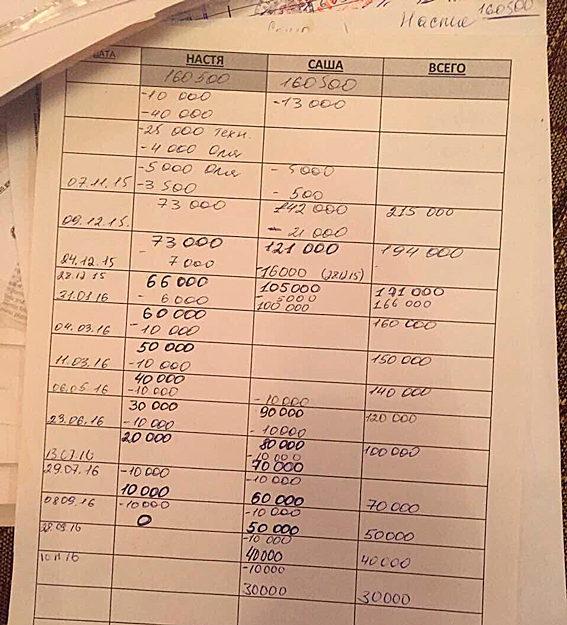 Настя 160500
ДАТА НАСТЯ САША ВСЕГО
160 500 160 500
-10 000 -13 000
-40 000
-25 000 техн.
-4 000 Оля
-5 000 Оля - 5000
07.11.15 -3 500 - 500
73 000 142 000 215 000
09.12.15. - 21 000
73 000 121 000 194 000
24.12.15 - 7 000
28.12.15 -16000
66 000 105000 171 000
31.01.16 - 6 000 - 5000 166 000
60 000 100 000
04.03.16 - 10 000 160 000
50 000
11.03.16 - 10 000 150 000
40 000
06.05.16 -10 000 - 10 000 140 000
30 000 90 000 120 000
23.06.16 -10 000 - 10 000
20 000 80 000 100 000
13.07.16 - 10 000
70 000
29.07.16 -10 000 - 10 000
10 000 60 000 70 000
08.09.16 -10 000 - 10 000
0 50 000 50000
28.09.16 -10 000
40000 40000
10.11.16 -10000
30000 30000